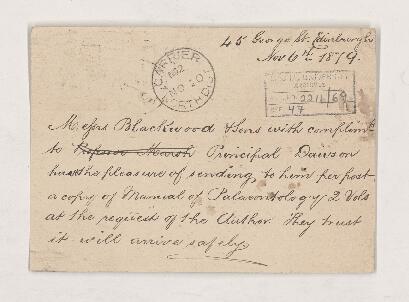 45 George St. Edinburgh
Nov 6th 1879.
CARRIER
No 2
NO 20
NORTH DIV
2211/69
47
Messrs Blackwood & Sons with complimts
to Professor Marsh Principal Dawson
has the pleasure of sending, to him per post
a copy of Manual of Palaeontology 2 Vols
at the request of the Author. They trust
it will arrive safely